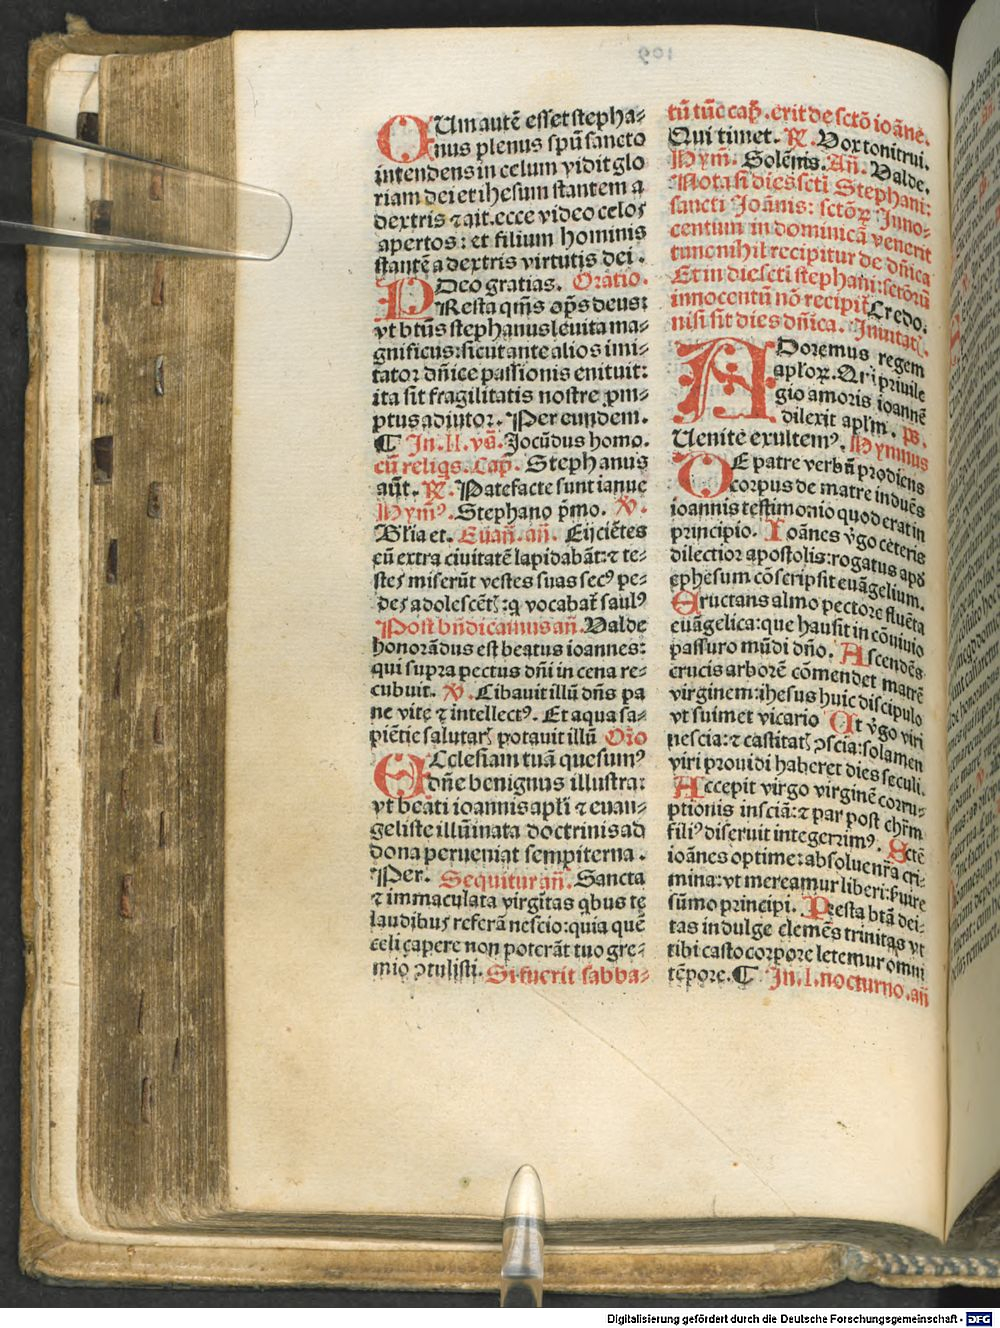 CUm autē esset stepha-
nus plenus spū sancto
intendens in celum vidit glo
riam dei et ihesum stantem a
dextris ⁊ ait. ecce video celos
apertos: et filium hominis
stantē a dextris virtutis dei.
Deo gratias. Oratio.
PResta qm̄s op̄s deus:
vt btūs stephanus leuita ma-
gnificus: sicut ante alios imi-
tator dn̄ice passionis enituit:
ita sit fragilitatis nostre ꝓm-
ptus adiutor. Per eundem.
¶ In .II. vs̄. Jocūdus homo.
cū reliqs. Cap̄. Stephanus
aūt. ℟. Patefacte sunt ianue
Hymꝰ. Stephano p̄mo. ℣.
Glia et. Euan̄. an̄. Eijciētes
eū extra ciuitatē lapidabāt: ⁊ te-
stes miserūt vestes suas secꝰ pe-
des adolescēt: q vocabat̄ saulꝰ
Post bn̄dicamus an̄. Valde
honorādus est beatus ioannes:
qui supra pectus dn̄i in cena re-
cubuit. ℣. Cibauit illū dn̄s pa
ne vite ⁊ intellectꝰ. Et aqua sa-
piētie salutar potauit illū Oro
ECclesiam tuā quesumꝰ
dn̄e benignus illustra:
vt beati ioannis apli ⁊ euan-
geliste illūinata doctrinis ad
dona perueniat sempiterna.
Per. Sequitur an̄. Sancta
⁊ immaculata virgītas qbus te
laudibus referā nescio: quia quē
celi capere non poterāt tuo gre-
mio ↄtulisti. Si fuerit sabba-
tū tūc cap̄. erit de sctō ioāne.
Qui timet. ℟. Vox tonitrui.
Hym̄. Solēnis. An̄. Valde.
Nota si dies scti Stephani:
sancti Joānis: sctōꝝ Inno-
centium in dominicā venerit
tunc nihil recipitur de dn̄ica
Et in die scti stephani: sctōrū
innocentū nō recipit̄ Credo.
nisi sit dies dn̄ica. Inuitat.
ADoremus regem
aploꝝ. Qui priuile
gio amoris ioannē
dilexit aplm. ps.
Uenite exultemꝰ. Hymnus
DE patre verbū prodiens
corpus de matre induēs
ioannis testimonio quod erat in
principio. Ioānes v̓go ceteris
dilectior apostolis: rogatus apd
ephesum cōscripsit euāgelium.
Eructans almo pectore fluēta
euāgelica: que hausit in cōuiuio
passuro mūdi dn̄o. Ascendēs
crucis arborē cōmendet matrē
virginem: ihesus huic discipulo
vt sui met vicario At v̓go viri
nescia: ⁊ castitat ↄscia: solamen
viri prouidi haberet dies seculi.
Accepit virgo virginē corru-
ptionis insciā: ⁊ par post chrm̄
filiꝰ diseruit integerrimꝰ. Sctē
ioānes optime: absoluen̄ra cri-
mina: vt mereamur liberi: ẜuire
sūmo principi. Presta btā dei-
tas indulge clemēs trinitas vt
tibi casto corpore letemur omni
tēpore. ¶ In .I. nocturno. an̄
109
Digitalisierung gefördert durch die Deutsche Forschungsgemeinschaft - DFG